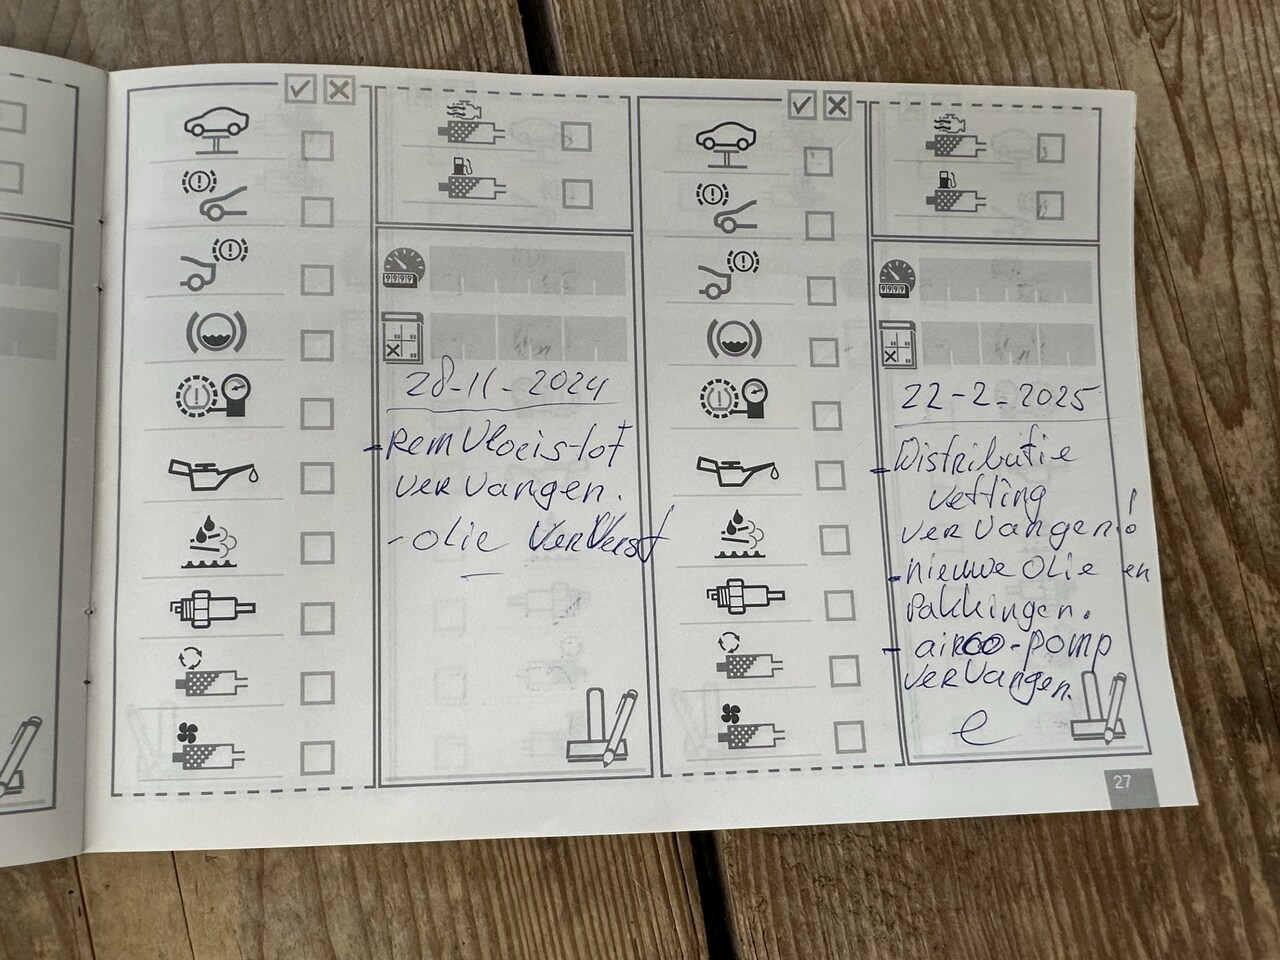 28-11-2024
- Remvloeistof
vervangen.
- olie ververst
22-2-2025
- Distributie
vetting
vervangen!
- nieuwe olie en
Pakkingen.
- airco-pomp
vervangen.
e
27